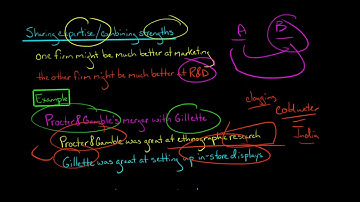 Sharing expertise/combining strengths
one firm might be much better at marketing
the other firm might be much better at R&D
A B
Example
Procter&Gamble's merger with Gillette
Procter&Gamble was great at ethnographic research
Gillette was great at setting up in-store displays
clogging
cold water
India